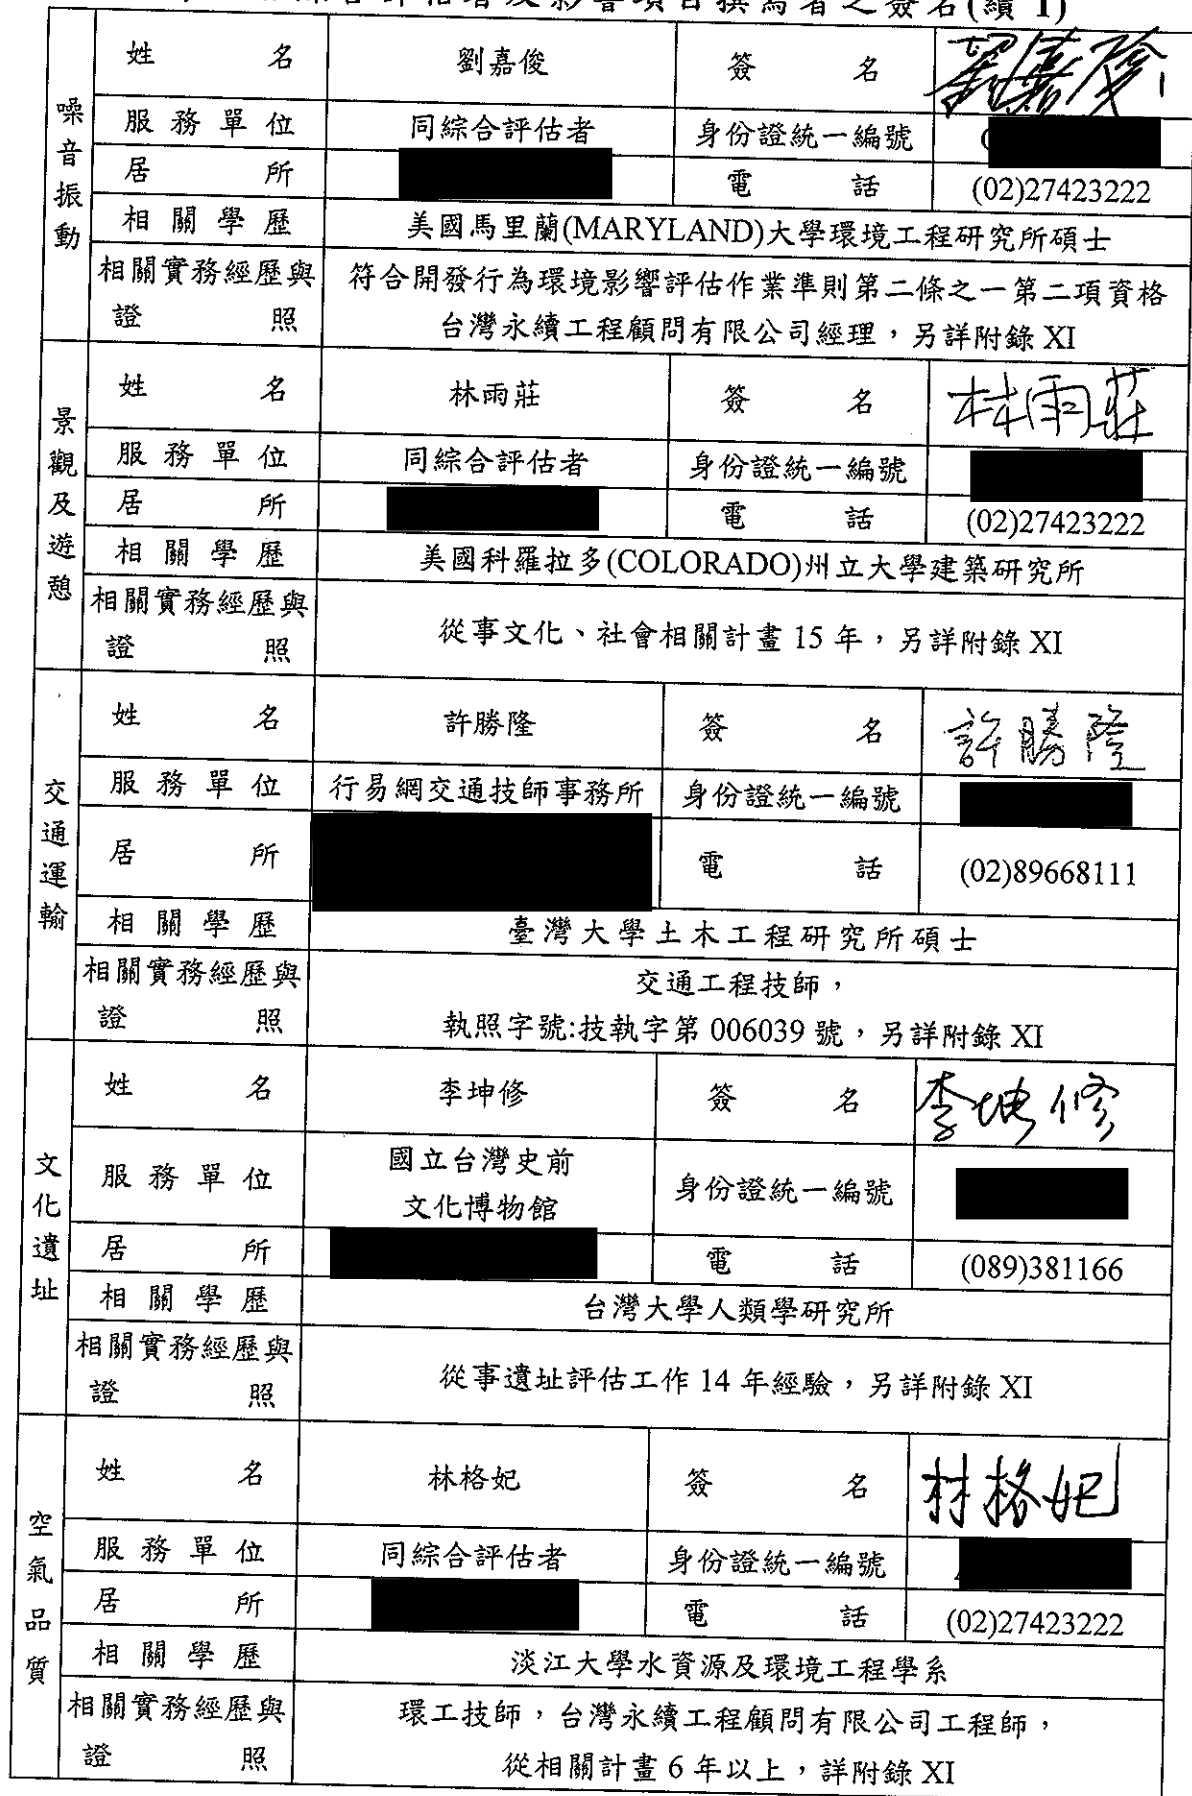 綜合評估者及影響項目撰寫者之簽名(續 1)
噪音振動
姓名 劉嘉俊 簽名 劉嘉俊
服務單位 同綜合評估者 身份證統一編號
居所 電話 (02)27423222
相關學歷 美國馬里蘭(MARYLAND)大學環境工程研究所碩士
相關實務經歷與 符合開發行為環境影響評估作業準則第二條之一第二項資格
證照 台灣永續工程顧問有限公司經理，另詳附錄 XI
景觀及遊憩
姓名 林雨莊 簽名 林雨莊
服務單位 同綜合評估者 身份證統一編號
居所 電話 (02)27423222
相關學歷 美國科羅拉多(COLORADO)州立大學建築研究所
相關實務經歷與
證照 從事文化、社會相關計畫 15 年，另詳附錄 XI
交通運輸
姓名 許勝隆 簽名 許勝隆
服務單位 行易網交通技師事務所 身份證統一編號
居所 電話 (02)89668111
相關學歷 臺灣大學土木工程研究所碩士
相關實務經歷與 交通工程技師，
證照 執照字號:技執字第 006039 號，另詳附錄 XI
文化遺址
姓名 李坤修 簽名 李坤修
服務單位 國立台灣史前
文化博物館 身份證統一編號
居所 電話 (089)381166
相關學歷 台灣大學人類學研究所
相關實務經歷與
證照 從事遺址評估工作 14 年經驗，另詳附錄 XI
空氣品質
姓名 林格妃 簽名 林格妃
服務單位 同綜合評估者 身份證統一編號
居所 電話 (02)27423222
相關學歷 淡江大學水資源及環境工程學系
相關實務經歷與 環工技師，台灣永續工程顧問有限公司工程師，
證照 從相關計畫 6 年以上，詳附錄 XI